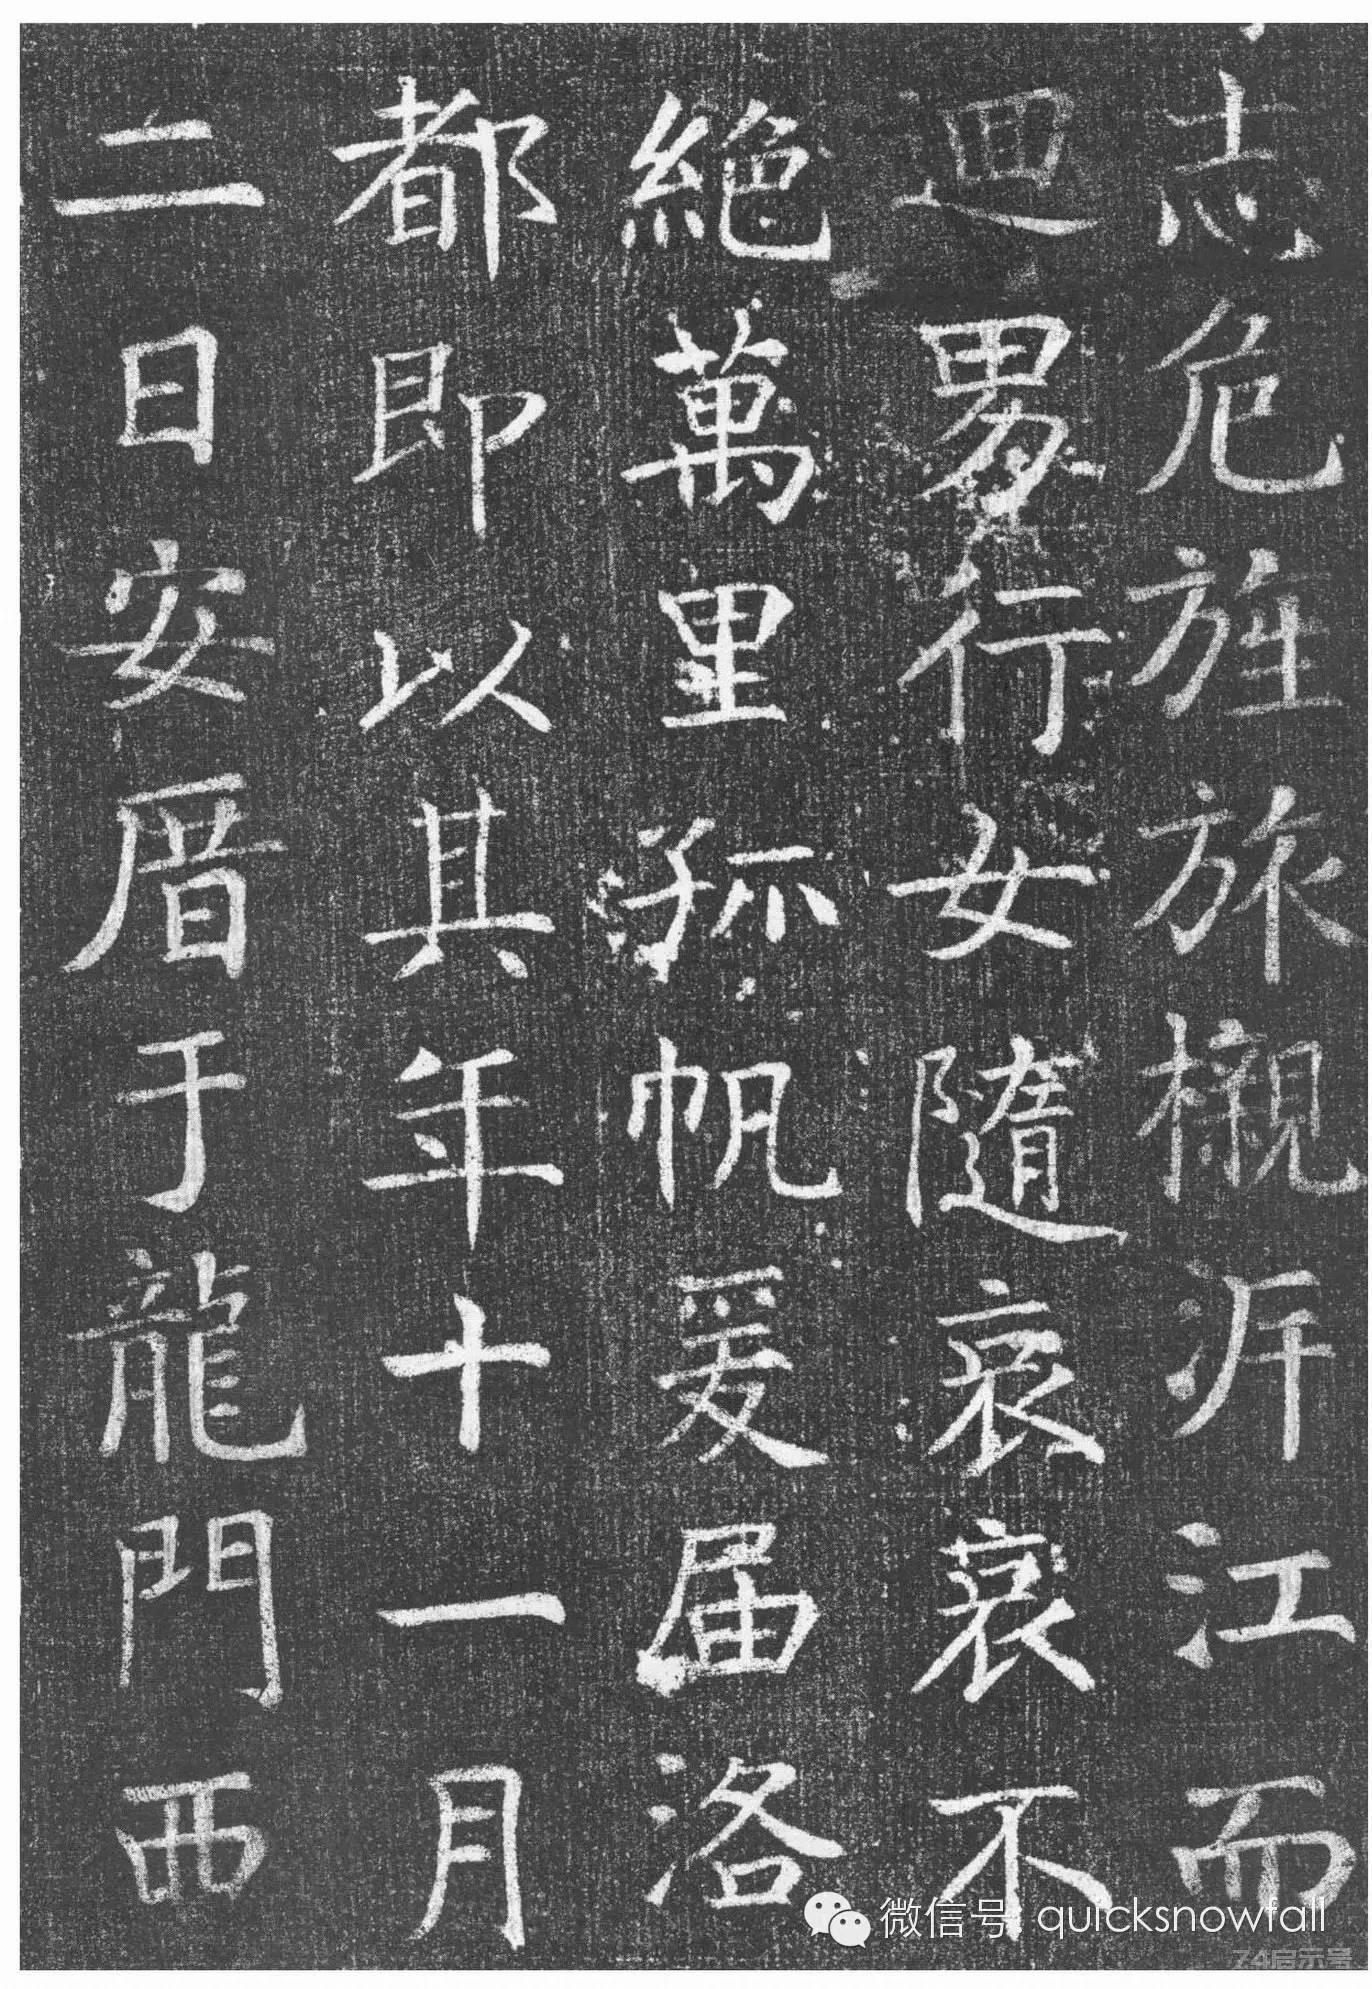 志危旌旅櫬泝江而
迴男行女隨哀哀不
絶萬里孤帆爰届洛
都即以其年十一月
二日安厝于龍門西
微信号 quicksnowfall
74启示号